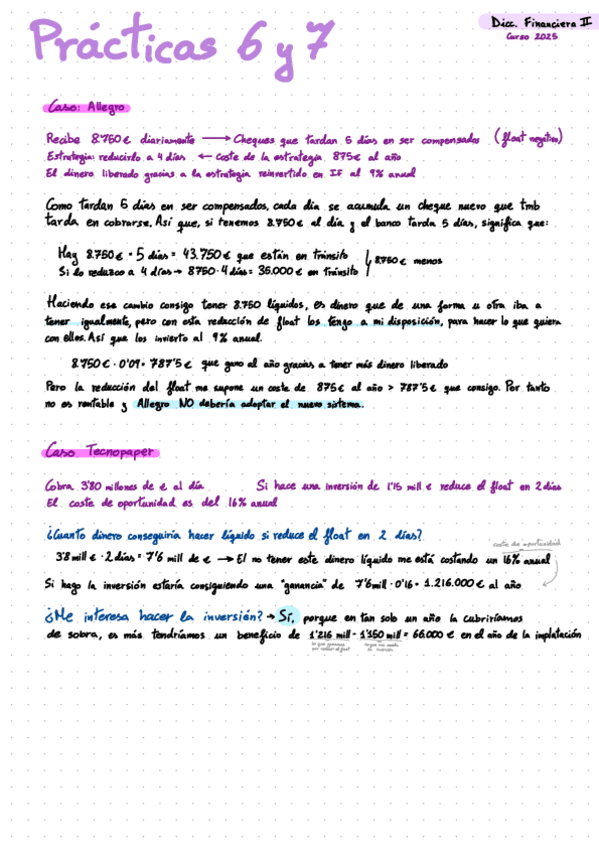 Dicc. Financiera II
Curso 2025
Prácticas 6 y 7
Caso: Allegro
Recibe 8.750€ diariamente → Cheques que tardan 5 días en ser compensados (float negativo)
Estrategia: reducirlo a 4 días ← Coste de la estrategia 875€ al año
El dinero liberado gracias a la estrategia reinvertido en IF al 9% anual
Como tardan 5 días en ser compensados, cada día se acumula un cheque nuevo que tmb
tarda en cobrarse. Así que, si tenemos 8.750€ al día y el banco tarda 5 días, significa que:
Hay 8.750€ · 5 días = 43.750€ que están en tránsito
Si lo reduzco a 4 días → 8750 · 4 días = 35.000€ en tránsito
8.750€ menos
Haciendo ese cambio consigo tener 8.750 líquidos, es dinero que de una forma u otra iba a
tener igualmente, pero con esta reducción de float los tengo a mi disposición, para hacer lo que quiera
con ellos. Así que los invierto al 9% anual.
8.750€ · 0'09 = 787'5€ que gano al año gracias a tener más dinero liberado
Pero la reducción del float me supone un coste de 875€ al año > 787'5€ que consigo. Por tanto
no es rentable y Allegro NO debería adoptar el nuevo sistema.
Caso Tecnopaper
Cobra 3'80 millones de € al día Si hace una inversión de 1'15 mill € reduce el float en 2 días
El coste de oportunidad es del 16% anual
¿Cuanto dinero conseguiría hacer líquido si reduce el float en 2 días?
coste de oportunidad
3'8 mill € · 2 días = 7'6 mill de € → El no tener este dinero líquido me está costando un 16% anual
Si hago la inversión estaría consiguiendo una "ganancia" de 7'6 mill · 0'16 = 1.216.000€ al año
¿Me interesa hacer la inversión? → Sí, porque en tan solo un año la cubriríamos
de sobra, es más tendríamos un beneficio de 1'216 mill - 1'150 mill = 66.000€ en el año de la implatación